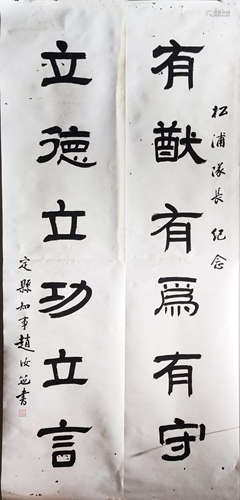 松浦隊長 紀念
有猷有為有守
立德立功立言
定縣知事趙汝
書